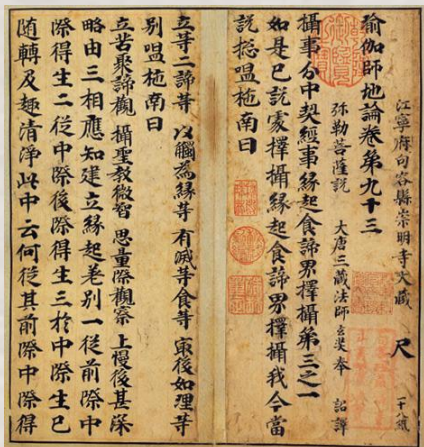 江寧府句容縣崇明寺大藏 尺 一十八紙
瑜伽師地論卷第九十三
弥勒菩薩說 大唐三藏法師玄奘奉 詔譯
攝事分中契經事緣起食諦界擇攝第三之一
如是已說處擇攝緣起食諦界擇攝我今當
說揔嗢柂南曰
立等二諦等 以觸為緣等 有滅等食等 㝡後如理等
別嗢柂南曰
立苦聚諦觀 攝聖教微智 思量際觀察 上慢後甚深
略由三相應知建立緣起差別一從前際中
際得生二從中際後際得生三於中際生已
随轉及趣清淨此中云何從其前際中際得